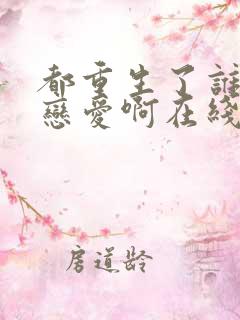 都重生了誰
戀愛啊在綫
房道龄